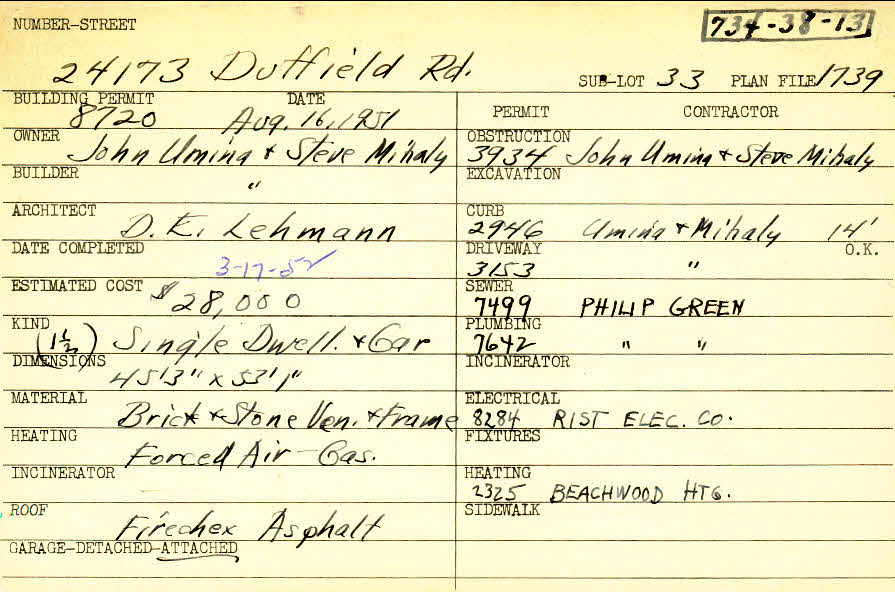 NUMBER-STREET
734-38-13
24173 Duffield Rd.
SUB-LOT 33 PLAN FILE 1739
BUILDING PERMIT DATE
8720 Aug. 16, 1951
OWNER
John Umina & Steve Mihaly
BUILDER
"
ARCHITECT
D. E. Lehmann
DATE COMPLETED
3-17-52
ESTIMATED COST
$28,000
KIND
(1½) Single Dwell. & Gar
DIMENSIONS
45'3" x 53'1"
MATERIAL
Brick & Stone Ven. & Frame
HEATING
Forced Air - Gas.
INCINERATOR
ROOF
Firechex Asphalt
GARAGE-DETACHED-ATTACHED
PERMIT CONTRACTOR
OBSTRUCTION
3934 John Umina & Steve Mihaly
EXCAVATION
CURB
2946 Umina & Mihaly 14'
DRIVEWAY O.K.
3153 "
SEWER
7499 PHILIP GREEN
PLUMBING
7642 " "
INCINERATOR
ELECTRICAL
8284 RIST ELEC. CO.
FIXTURES
HEATING
2325 BEACHWOOD HTG.
SIDEWALK